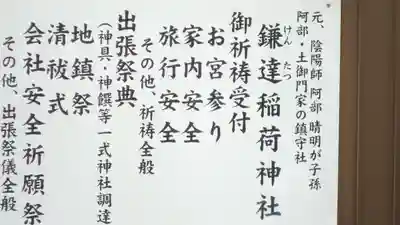 元、陰陽師 阿部 晴明が子孫
阿部・土御門家の鎮守社
鎌達稲荷神社
けん たつ
御祈祷受付
お宮参り
家内安全
旅行安全
その他、祈祷全般
出張祭典
(神具・神饌等一式神社調達
地鎮祭
清祓式
会社安全祈願祭
その他、出張祭儀全般